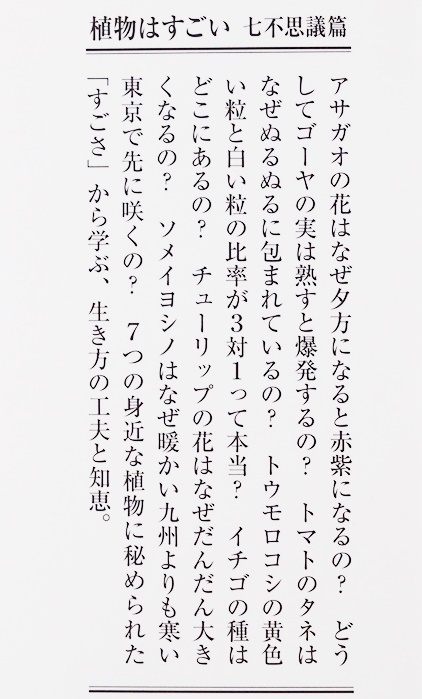 植物はすごい 七不思議篇
アサガオの花はなぜ夕方になると赤紫になるの？ どう
してゴーヤの実は熟すと爆発するの？ トマトのタネは
なぜぬるぬるに包まれているの？ トウモロコシの黄色
い粒と白い粒の比率が３対１って本当？ イチゴの種は
どこにあるの？ チューリップの花はなぜだんだん大き
くなるの？ ソメイヨシノはなぜ暖かい九州よりも寒い
東京で先に咲くの？ ７つの身近な植物に秘められた
「すごさ」から学ぶ、生き方の工夫と知恵。